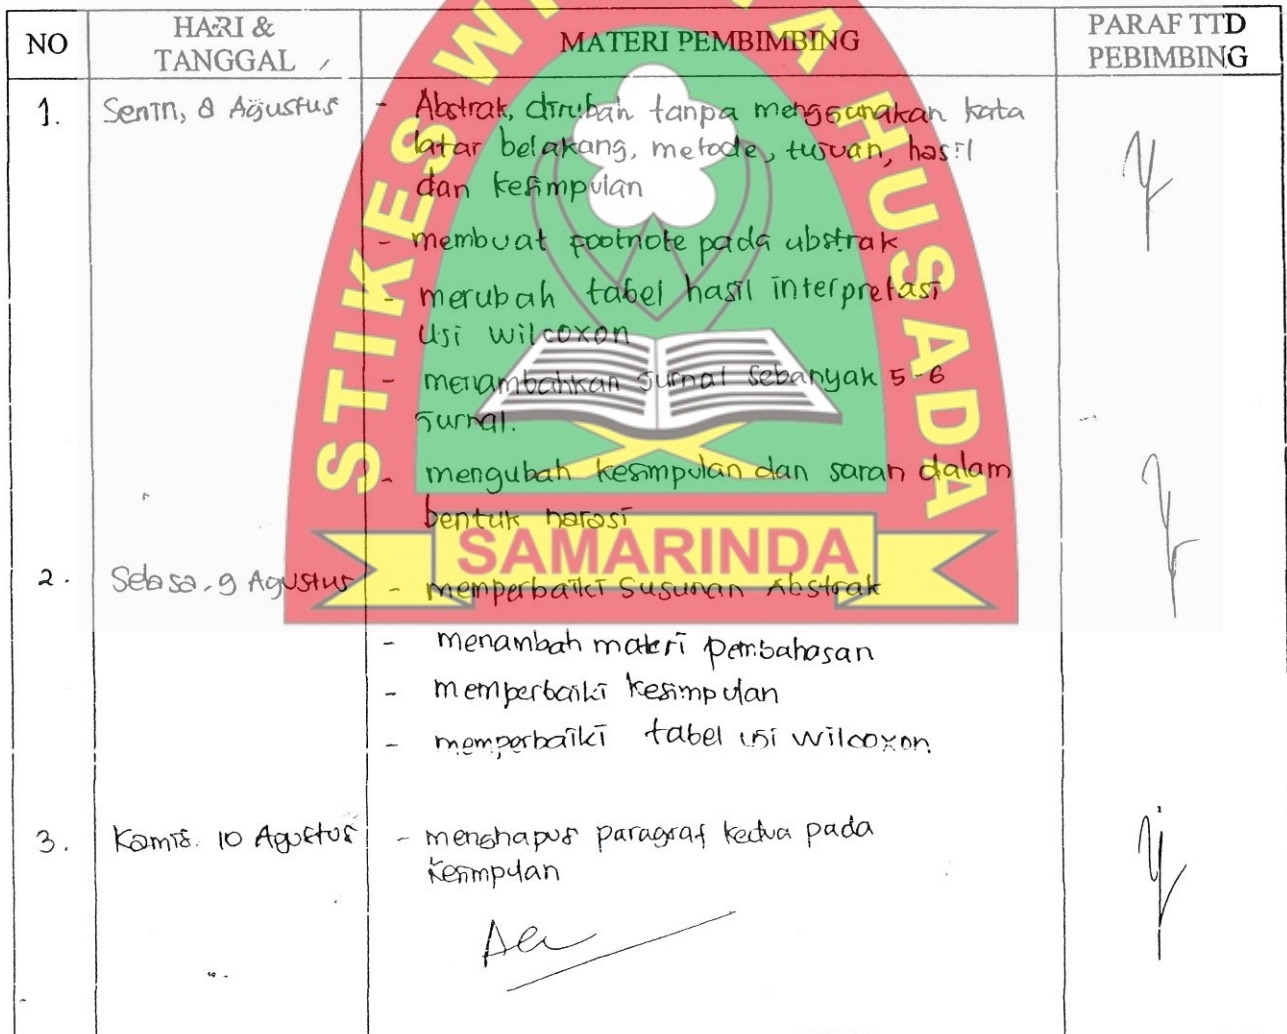 NO
HARI &
TANGGAL
MATERI PEMBIMBING
PARAF TTD
PEBIMBING
1.
Senin, 8 Agustus
- Abstrak, dirubah tanpa menggunakan kata
latar belakang, metode, tujuan, hasil
dan kesimpulan
- membuat footnote pada abstrak
- merubah tabel hasil interpretasi
Uji wilcoxon
- menambahkan Jurnal sebanyak 5-6
Jurnal.
- mengubah kesimpulan dan saran dalam
bentuk narasi
2.
Selasa, 9 Agustus
- memperbaiki Susunan Abstrak
- menambah materi pembahasan
- memperbaiki kesimpulan
- memperbaiki tabel uji wilcoxon
3.
Kamis. 10 Agustus
- menghapus paragraf kedua pada
kesimpulan
STIKES HUSADA
SAMARINDA